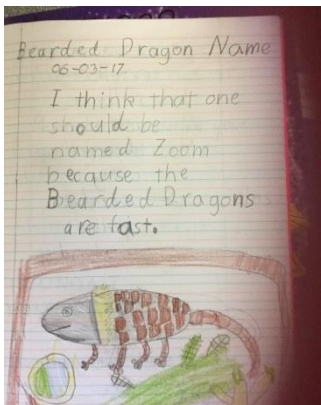 Bearded Dragon Name
06-03-17
I think that one
should be
named Zoom
because the
Bearded Dragons
are fast.